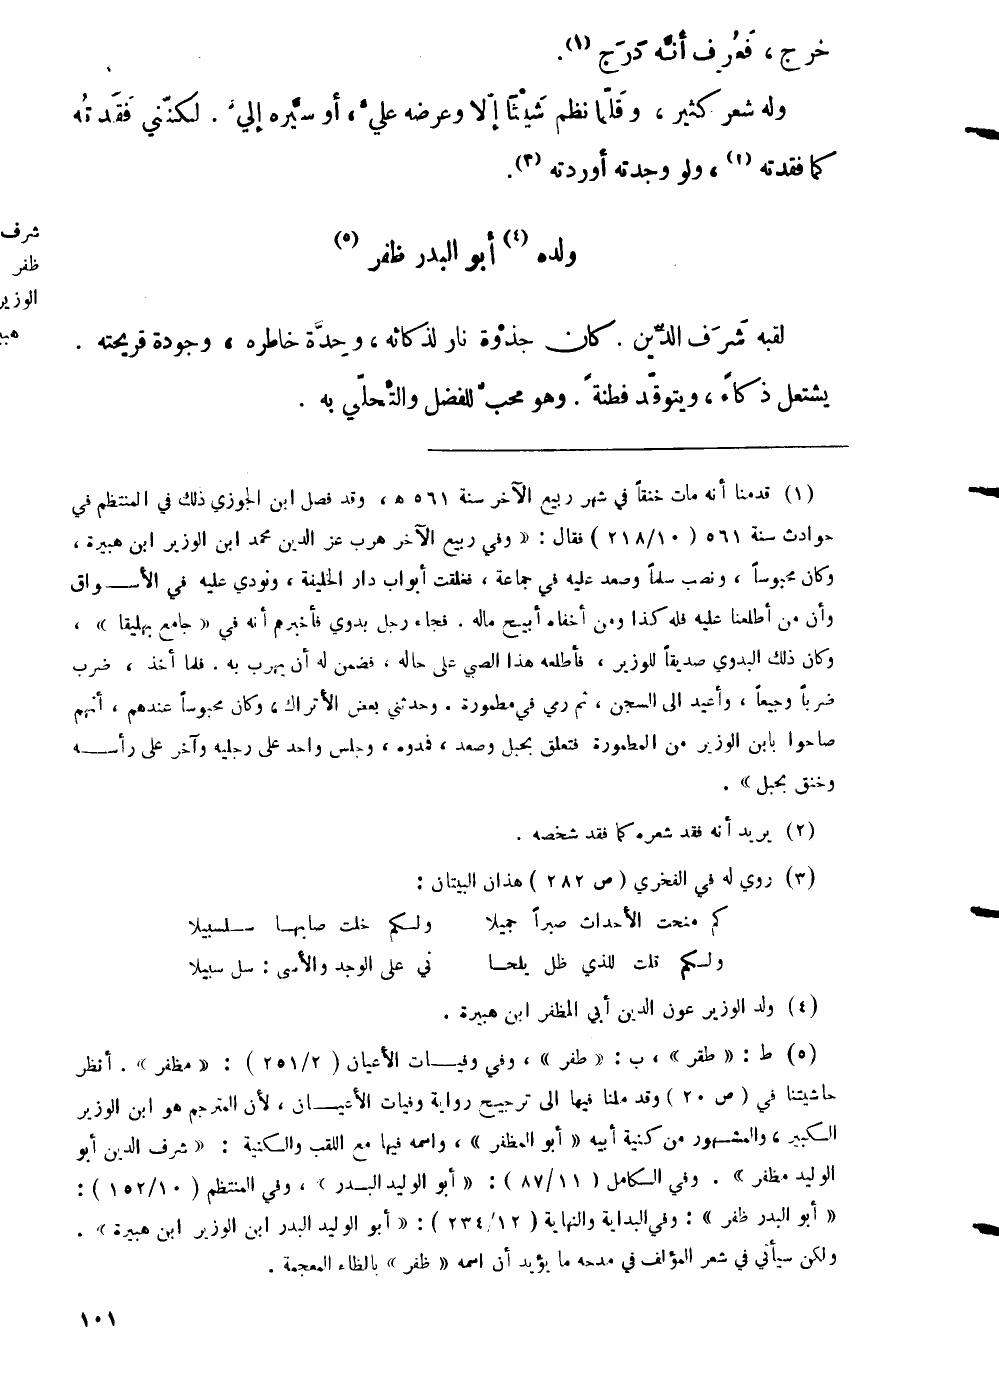 خرج ، فَعُرِف أنَّه دَرَج (١).
وله شعر كثير ، وقلّما نظم شَيْئاً إلّا وعرضه عليّ ، أو سيَّره إليّ . لكنّني فَقَدتُه
كما فقدته (٢) ، ولو وجدته أوردته (٣).
شرف
ظفر
الوزير
ولده (٤) أبو البدر ظفر (٥)
لقبه شَرَف الدّين . كان جذوة نار لذكائه ، وحِدَّة خاطره ، وجودة قريحته .
يشتعل ذكاءً ، ويتوقّد فطنةً . وهو محبّ للفضل والتّحلّي به .
(١) قدمنا أنه مات خنقاً في شهر ربيع الآخر سنة ٥٦١ ه ، وقد فصل ابن الجوزي ذلك في المنتظم في
حوادث سنة ٥٦١ ( ٢١٨/١٠ ) فقال : « وفي ربيع الآخر هرب عز الدين محمد ابن الوزير ابن هبيرة ،
وكان محبوساً ، ونصب سلماً وصعد عليه في جماعة ، فغلقت أبواب دار الخليفة ، ونودي عليه في الأسواق
وأن من أطلعنا عليه فله كذا ومن أخفاه أبيح ماله . فجاء رجل بدوي فأخبرهم أنه في « جامع بهليقا » ،
وكان ذلك البدوي صديقاً للوزير ، فأطلعه هذا الصبي على حاله ، فضمن له أن يهرب به . فلما أخذ ، ضرب
ضرباً وجيعاً ، وأعيد الى السجن ، ثم رمي في مطمورة . وحدثني بعض الأتراك ، وكان محبوساً عندهم ، أنهم
صاحوا بابن الوزير من المطمورة فتعلق بحبل وصعد ، فمدوه ، وجلس واحد على رجليه وآخر على رأسه
وخنق بحبل » .
(٢) يريد أنه فقد شعره كما فقد شخصه .
(٣) روي له في الفخري ( ص ٢٨٢ ) هذان البيتان :
كم منحت الأحداث صبراً جميلا ولكم خلت صابها سلسبيلا
ولكم قلت للذي ظل يلحا ني على الوجد والأسى : سل سبيلا
(٤) ولد الوزير عون الدين أبي المظفر ابن هبيرة .
(٥) ط : « طقر » ، ب : « طفر » ، وفي وفيات الأعيان ( ٢٥١/٢ ) : « مظفر » . أنظر
حاشيتنا في ( ص ٢٠ ) وقد ملنا فيها الى ترجيح رواية وفيات الأعيان ، لأن المترجم هو ابن الوزير
الكبير ، والمشهور من كنية أبيه « أبو المظفر » ، واسمه فيها مع اللقب والكنية : « شرف الدين أبو
الوليد مظفر » . وفي الكامل ( ٨٧/١١ ) : « أبو الوليد البدر » ، وفي المنتظم ( ١٥٢/١٠ ) :
« أبو البدر ظفر » : وفي البداية والنهاية ( ٢٣٤/١٢ ) : « أبو الوليد البدر ابن الوزير ابن هبيرة » .
ولكن سيأتي في شعر المؤلف في مدحه ما يؤيد أن اسمه « ظفر » بالظاء المعجمة .
١٠١